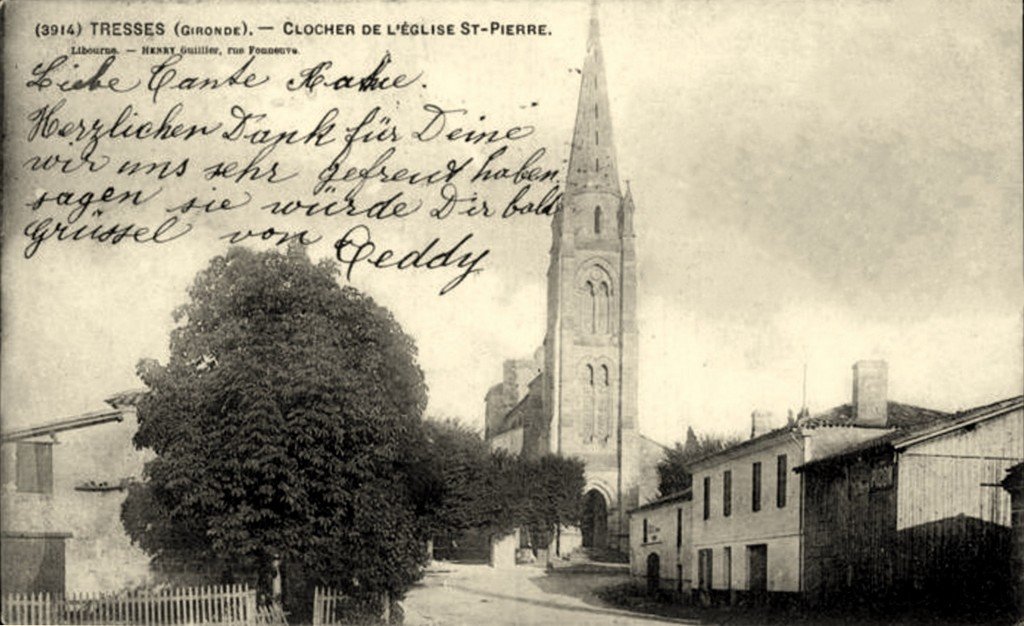 (3914) TRESSES (GIRONDE). — CLOCHER DE L'ÉGLISE ST-PIERRE.
Libourne. — HENRY Guillier, rue Fonneuve.
Liebe Tante
Herzlichen Dank für Deine
wir uns sehr gefreut haben,
sagen sie würde Dir bald
Grüssel von Teddy